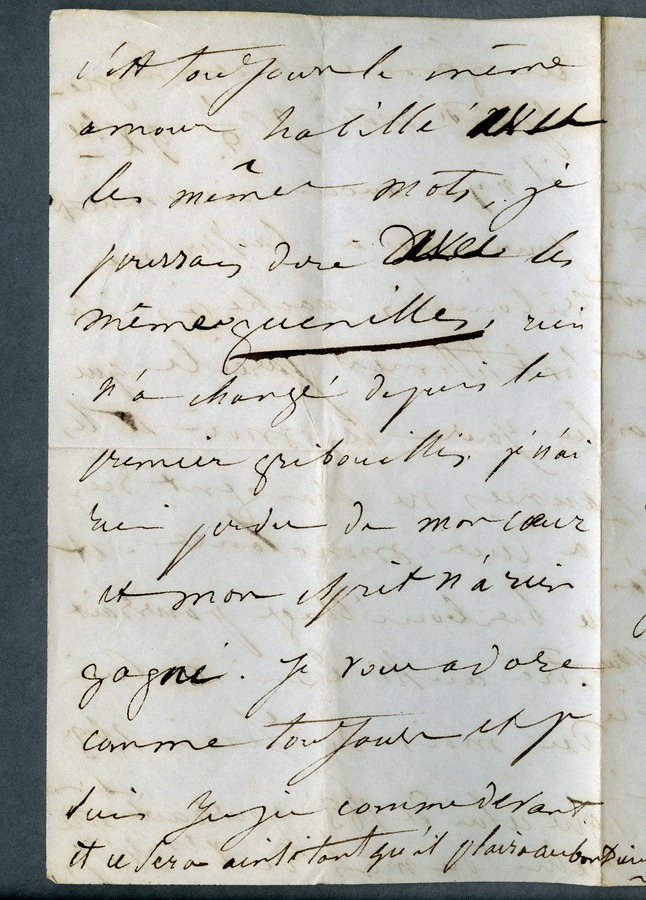 c'est toujours le même
amour habillé avec
les mêmes mots, je
pourrais dire avec les
mêmes guenilles, rien
n'a changé depuis le
premier gribouillis. je n'ai
rien perdu de mon cœur
et mon esprit n'a rien
gagné. Je vous adore
comme toujours et je
suis comme devant
et ce sera ainsi tant qu'il plaira au bon Dieu